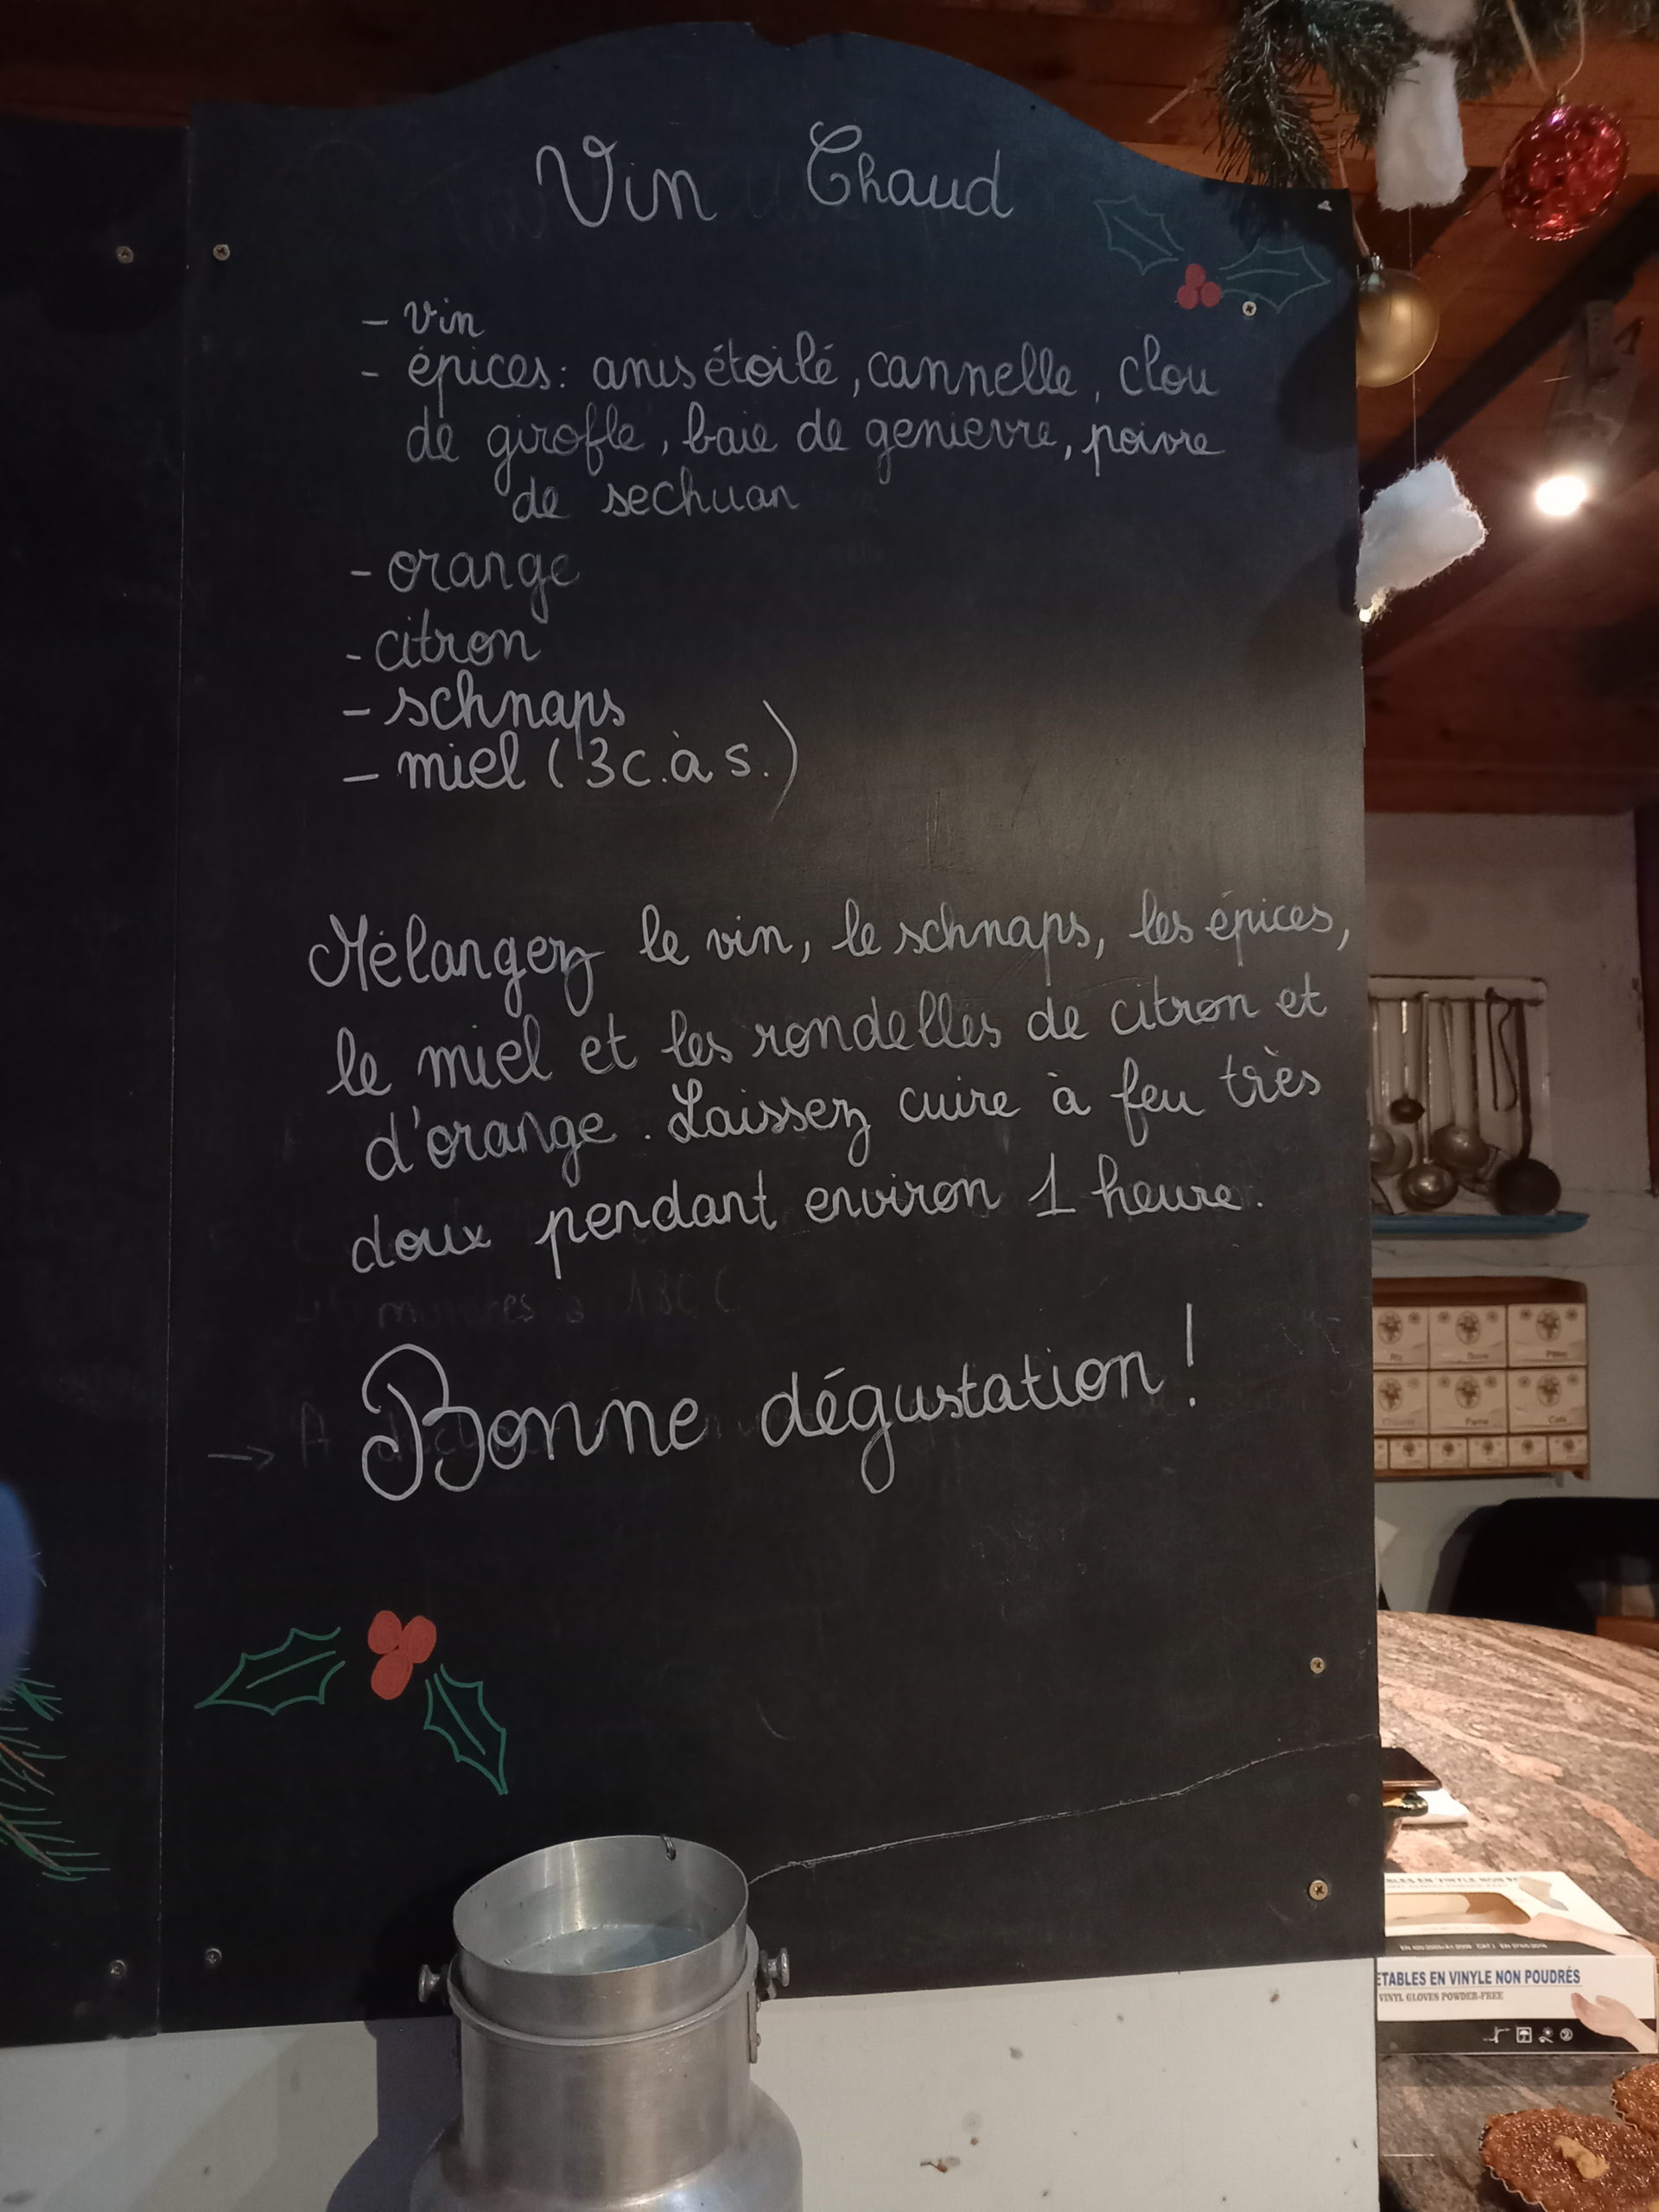 Vin Chaud
- vin
- épices: anis étoilé, cannelle, clou
de girofle, baie de genievre, poivre
de sechuan
- orange
- citron
- schnaps
- miel (3 c. à s.)
Mélangez le vin, le schnaps, les épices,
le miel et les rondelles de citron et
d'orange. Laissez cuire à feu très
doux pendant environ 1 heure.
Bonne dégustation!
EN VINYLE NON
ETABLES EN VINYLE NON POUDRÉS
VINYL GLOVES POWDER-FREE